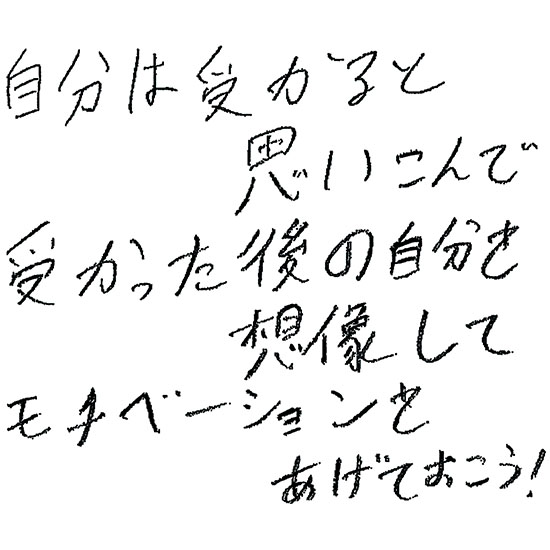 自分は受かると
思いこんで
受かった後の自分を
想像して
モチベーションを
あげておこう!